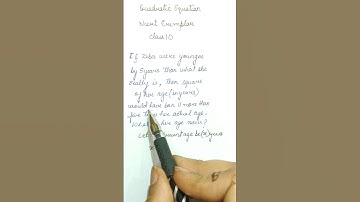 Quadratic Equation
Ncert Exemplar
Class 10
If Zeba were younger
by 5 years than what she
really is, then square
of her age (in years)
would have been 11 more than
five times her actual age.
What is her age now?
Let present age be (x) years